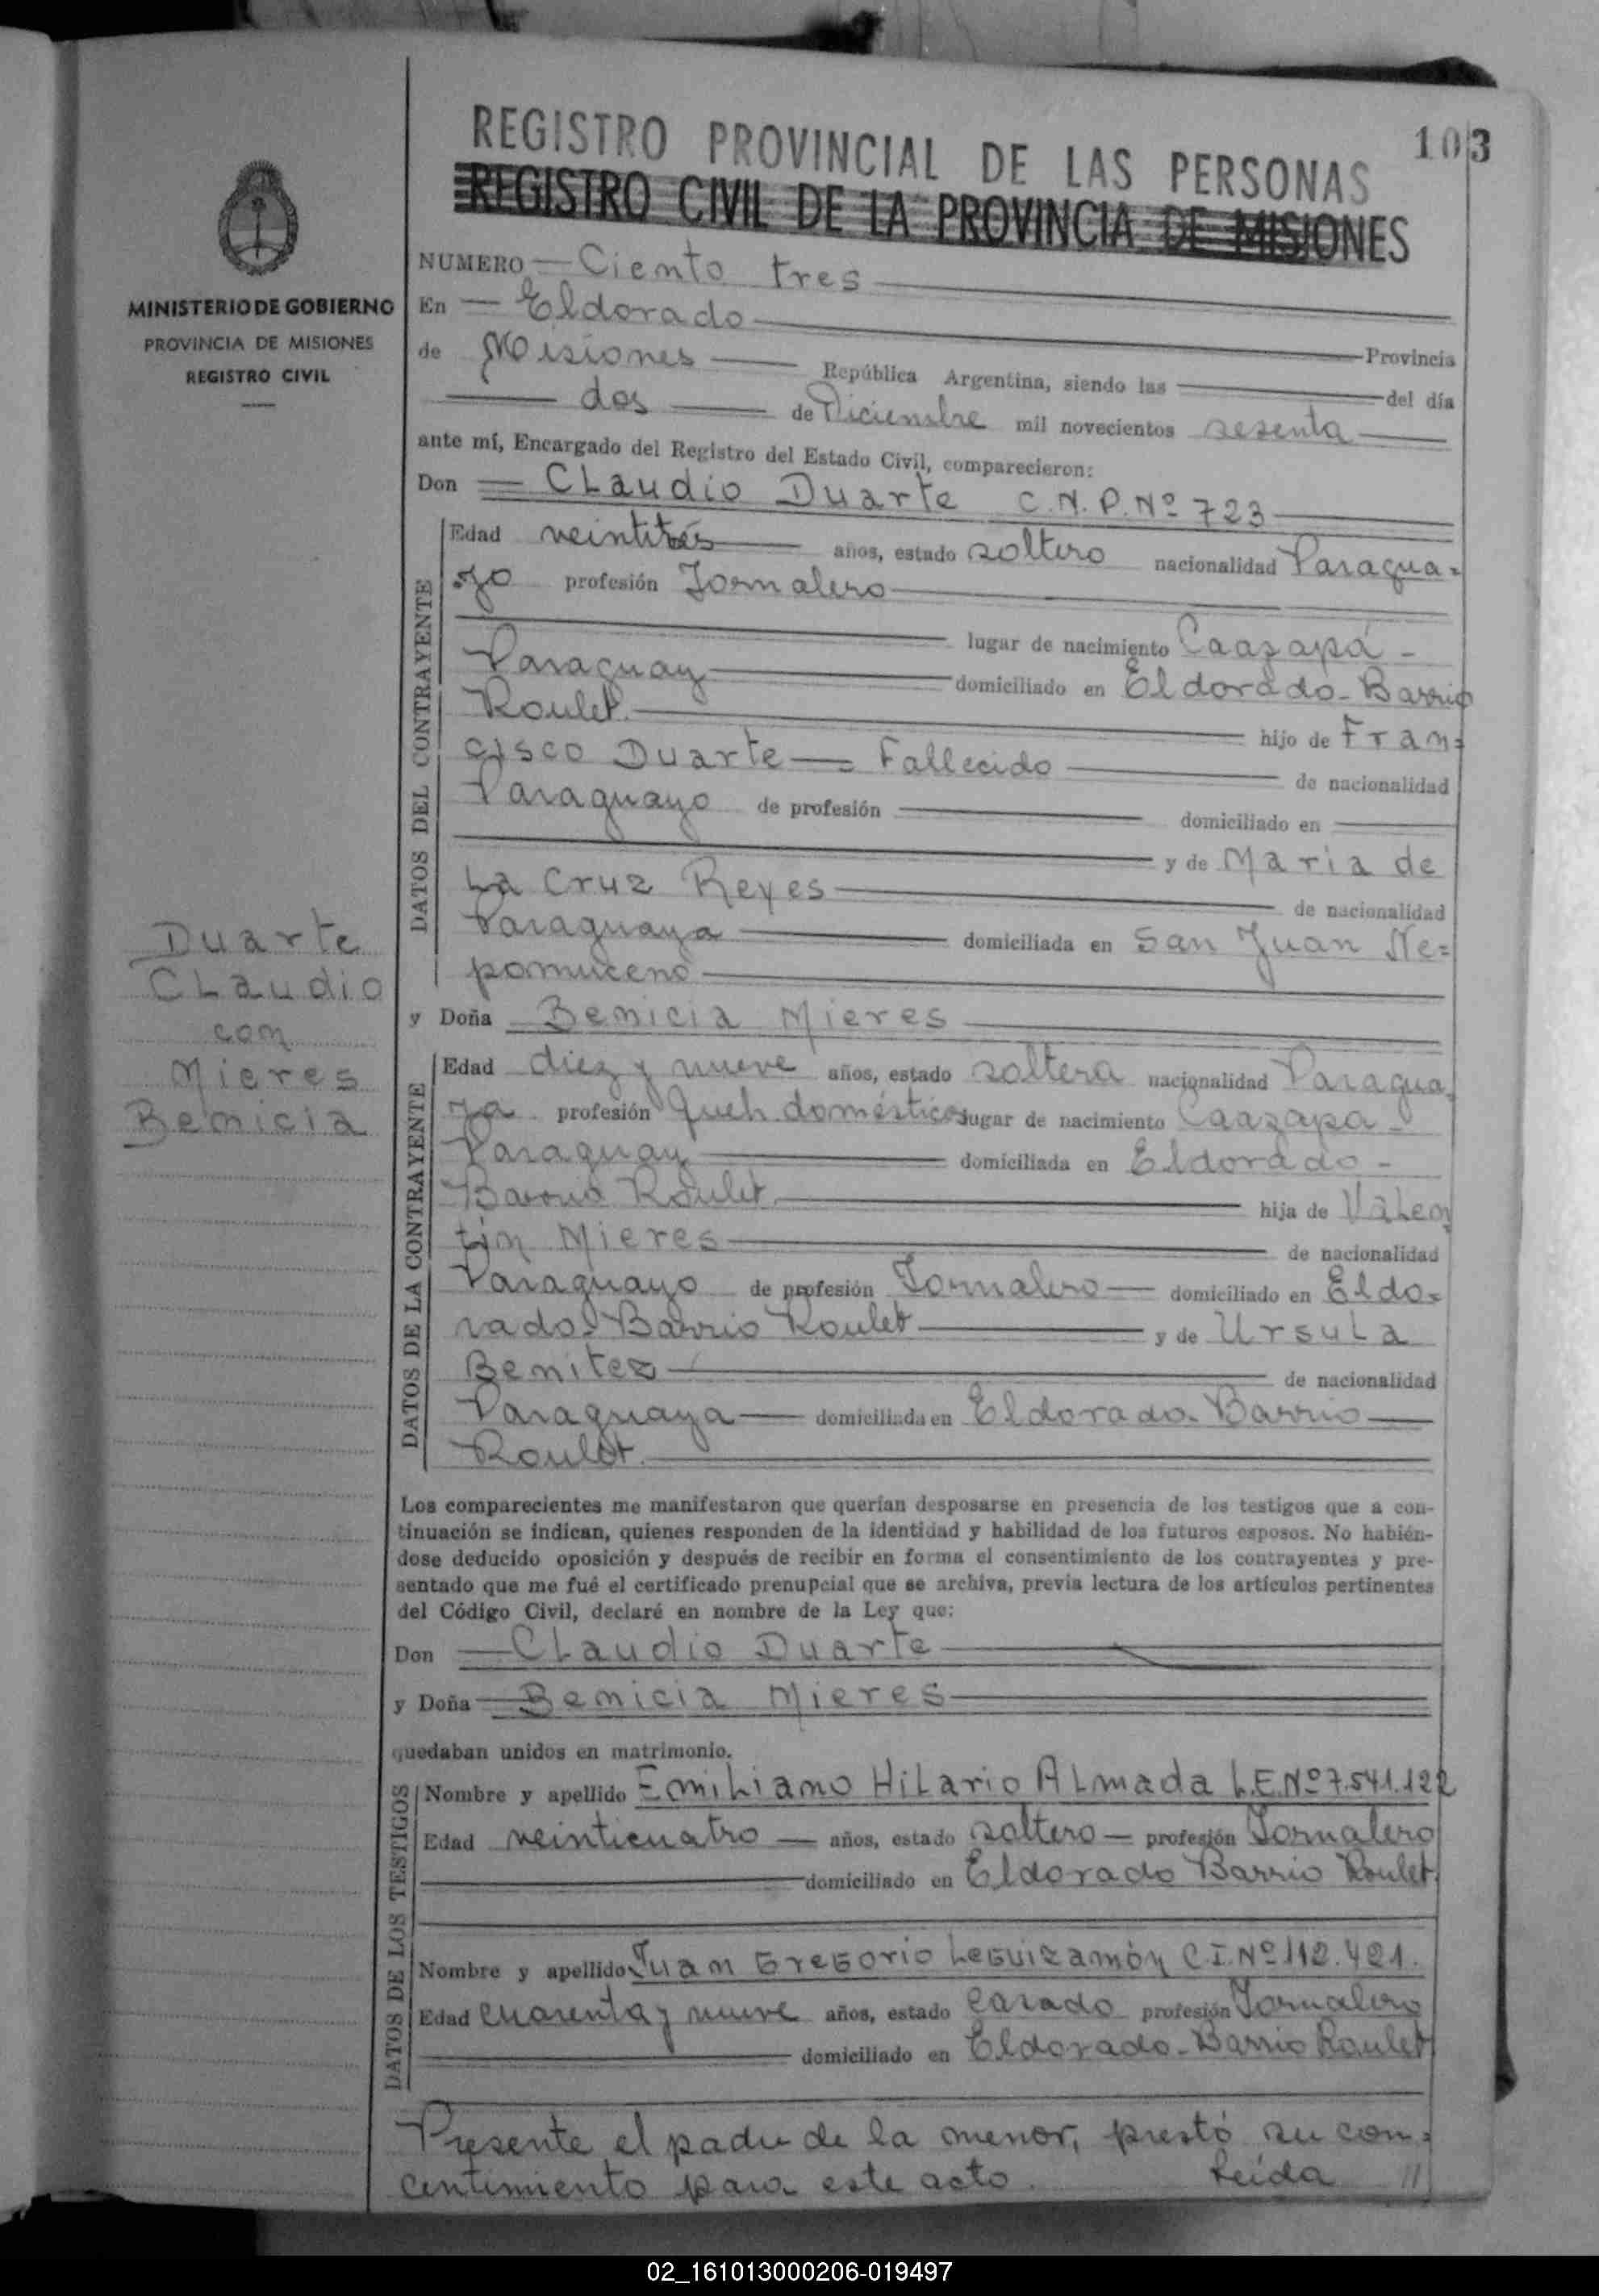 REGISTRO PROVINCIAL DE LAS PERSONAS 103
REGISTRO CIVIL DE LA PROVINCIA DE MISIONES
MINISTERIO DE GOBIERNO
PROVINCIA DE MISIONES
REGISTRO CIVIL
NUMERO Ciento tres
En Eldorado Provincia
de Misiones República Argentina, siendo las del día
dos de Diciembre mil novecientos sesenta
ante mí, Encargado del Registro del Estado Civil, comparecieron:
Don Claudio Duarte C.N.P.Nº 723
DATOS DEL CONTRAYENTE
Edad veintitrés años, estado soltero nacionalidad Paragua=
yo profesión Jornalero
lugar de nacimiento Caazapá -
Paraguay domiciliado en Eldorado - Barrio
Roulet. hijo de Fran=
cisco Duarte = Fallecido de nacionalidad
Paraguayo de profesión domiciliado en
y de Maria de
La Cruz Reyes de nacionalidad
Paraguaya domiciliada en San Juan Ne=
pomuceno
Duarte
Claudio
con
Mieres
Benicia
y Doña Benicia Mieres
DATOS DE LA CONTRAYENTE
Edad diez y nueve años, estado soltera nacionalidad Paragua=
ya profesión Queh. domésticos lugar de nacimiento Caazapa -
Paraguay domiciliada en Eldorado -
Barrio Roulet hija de Valen=
tin Mieres de nacionalidad
Paraguayo de profesión Jornalero domiciliado en Eldo=
rado - Barrio Roulet y de Ursula
Benitez de nacionalidad
Paraguaya domiciliada en Eldorado - Barrio
Roulet.
Los comparecientes me manifestaron que querían desposarse en presencia de los testigos que a con-
tinuación se indican, quienes responden de la identidad y habilidad de los futuros esposos. No habién-
dose deducido oposición y después de recibir en forma el consentimiento de los contrayentes y pre-
sentado que me fué el certificado prenupcial que se archiva, previa lectura de los artículos pertinentes
del Código Civil, declaré en nombre de la Ley que:
Don Claudio Duarte
y Doña Benicia Mieres
quedaban unidos en matrimonio.
DATOS DE LOS TESTIGOS
Nombre y apellido Emiliano Hilario Almada L.E.Nº 7.541.122
Edad veinticuatro años, estado soltero profesión Jornalero
domiciliado en Eldorado Barrio Roulet.
Nombre y apellido Juan Gregorio Leguizamón C.I.Nº 112.421.
Edad cuarenta y nueve años, estado casado profesión Jornalero
domiciliado en Eldorado - Barrio Roulet
Presente el padre de la menor, prestó su con=
centimiento para este acto. Leida //
02_161013000206-019497